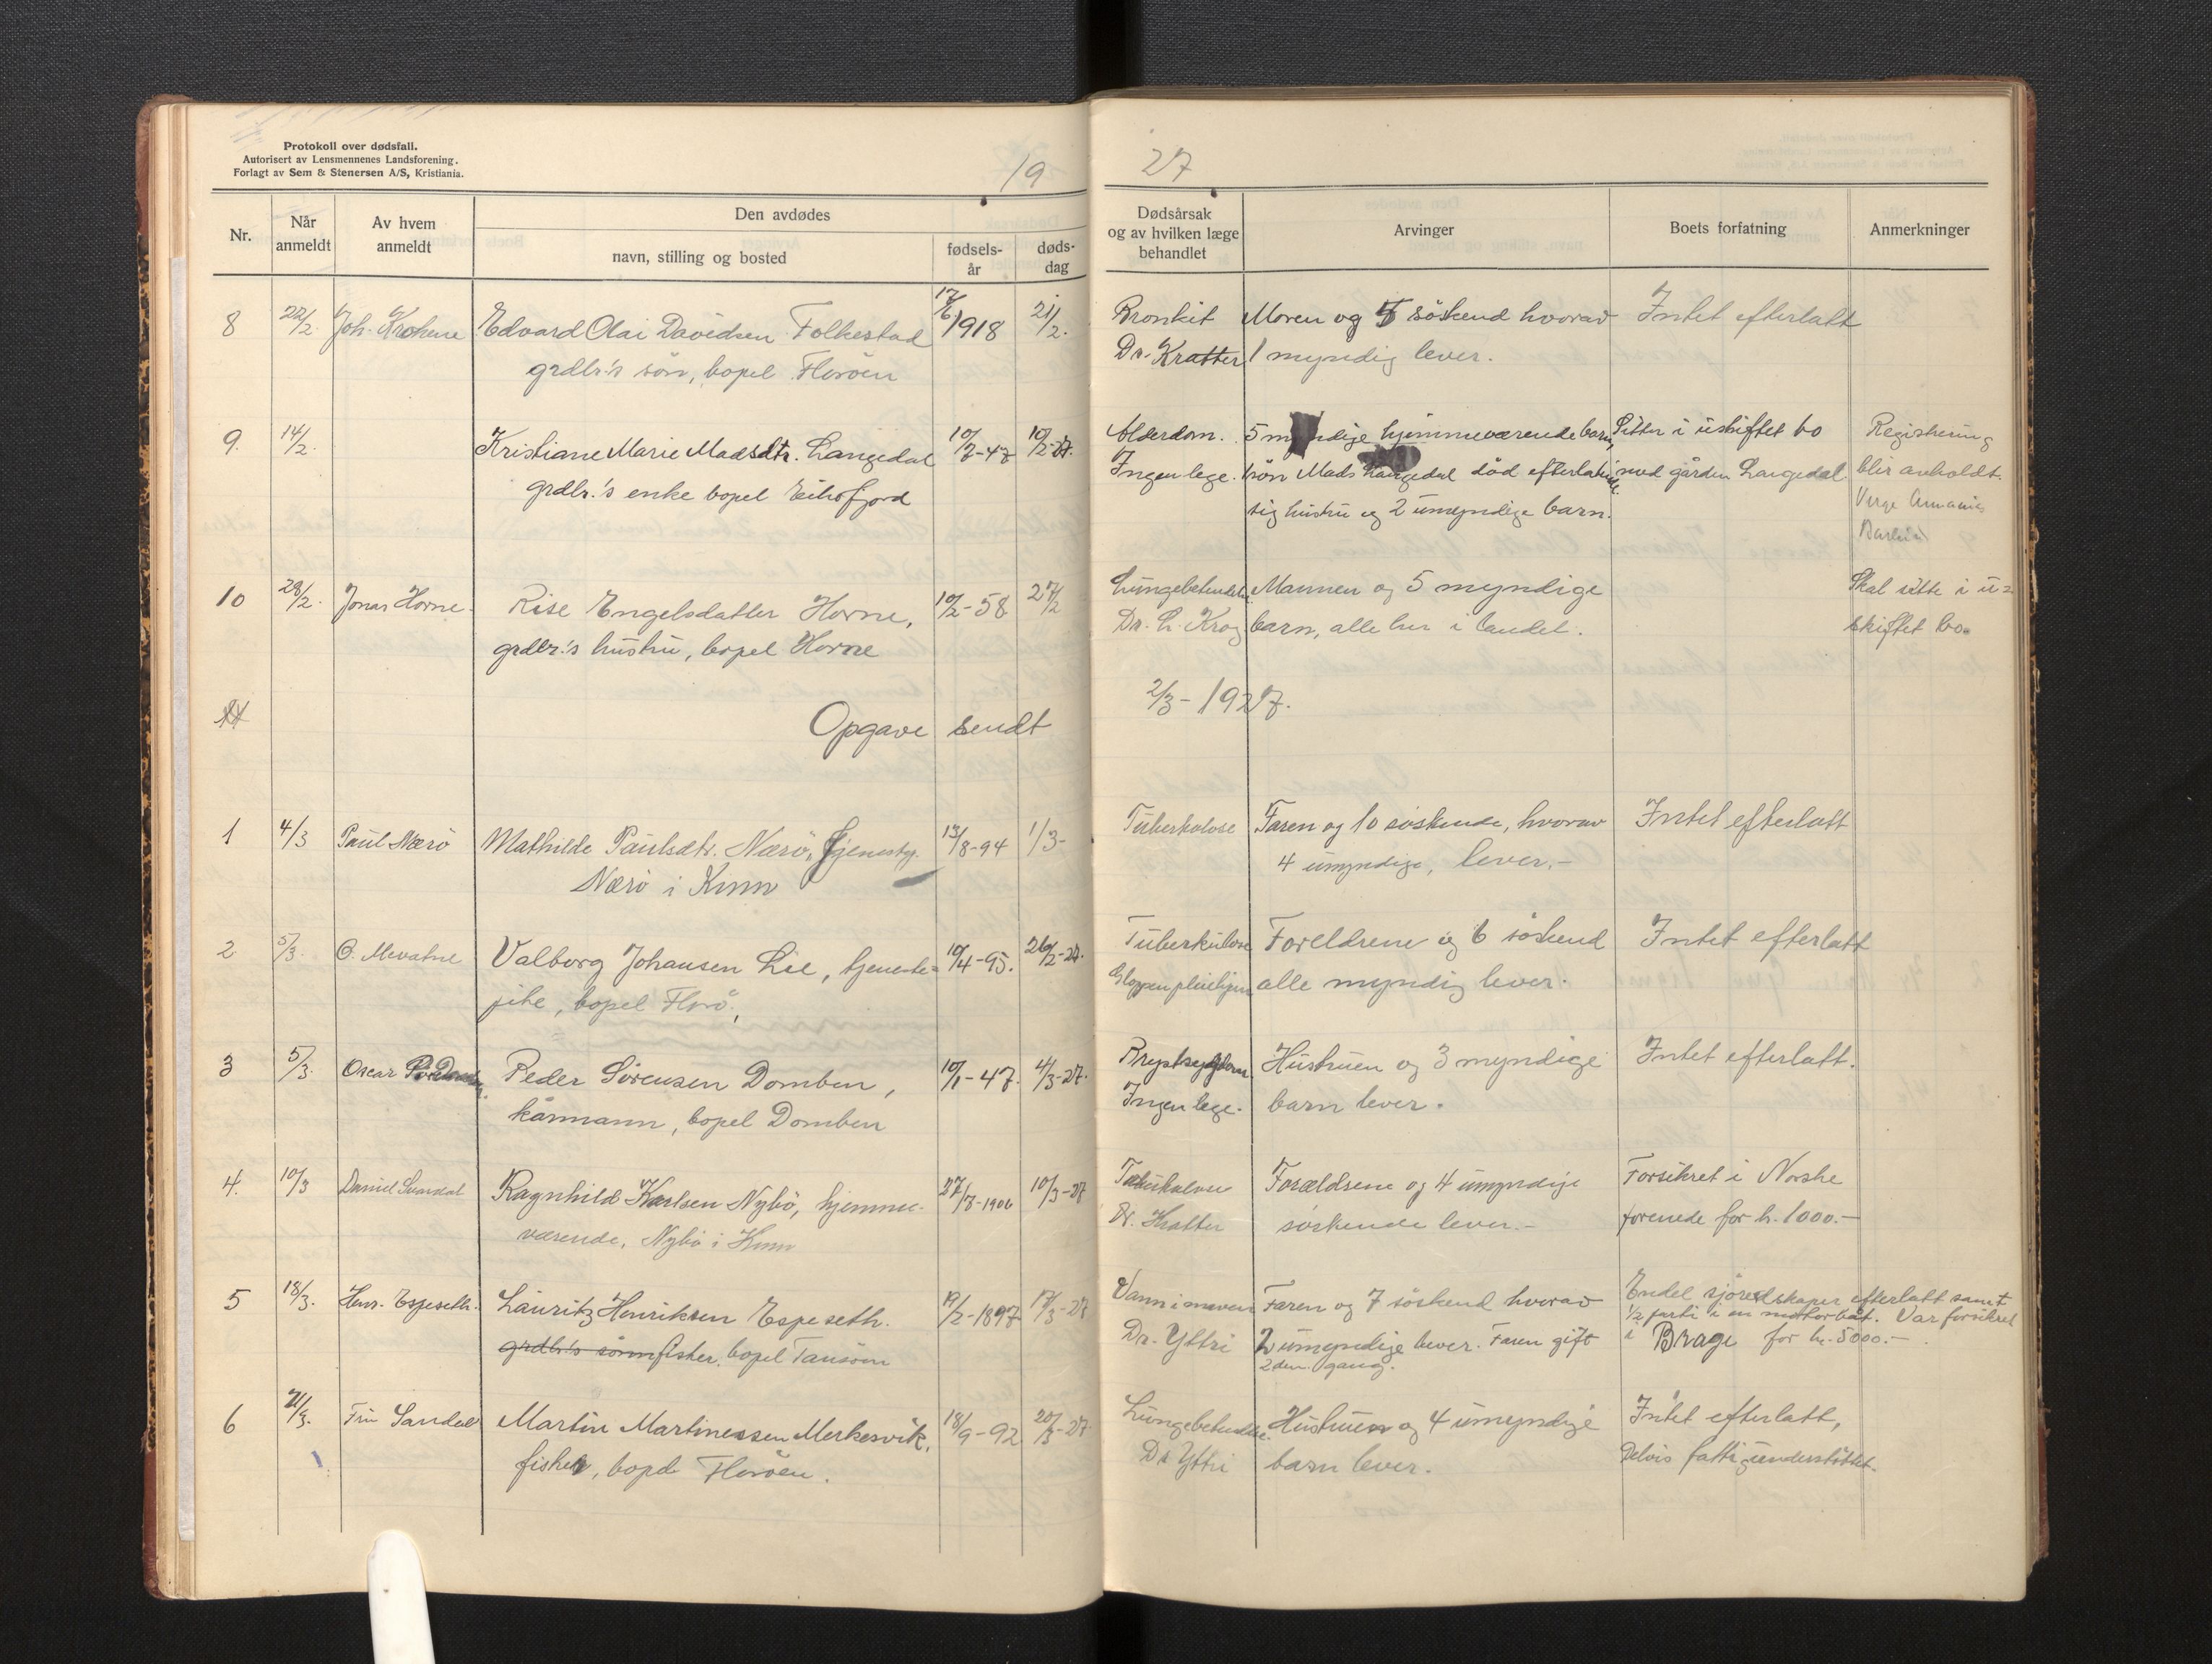 Protokoll over dødsfall.
Autorisert av Lensmennenes Landsforening.
Forlagt av Sem & Stenersen A/S, Kristiania.
19 27
Nr.
Når anmeldt
Av hvem anmeldt
Den avdødes
navn, stilling og bosted
fødsels-år
døds-dag
Dødsårsak og av hvilken læge behandlet
Arvinger
Boets forfatning
Anmerkninger
8 22/2. Joh. Edvard Olai Davidsen Folkestad 17/6 1918 21/2. Bronkit Moren og söskend hvorav Intet efterlatt
grdbr.'s sön, bopel Floröen Dr. Kratter 1 myndig lever.
9. 14/2. Kristiane Marie Madsdtr. Langedal 10/2-47 Alderdom. 5 myndige hjemmeværende barn, Sitter i uskiftet bo Registrering
grdbr.'s enke bopel Eikefjord Ingen lege. sön Mads Langedal död efterlatende med gården Langedal blir avholdt.
sig hustru og 2 umyndige barn. Verge
10 28/2. Jonas Horne. Rise Engelsdatter Horne, 10/2-58 27/2 Lungebetendelse. Mannen og 5 myndige Skal sitte i u=
grdbr.'s hustru, bopel Horne Dr. L. Krog barn, alle her i landet. skiftet bo.
Opgave sendt 2/3-1927.
1 4/3 Paul Nærö Mathilde Paulsdtr. Nærö, tjenestp. 13/8-94 1/3- Tuberkulose Faren og 10 söskende, hvorav Intet efterlatt
Nærö i Kinn 4 umyndige, lever.-
2 5/3. O. Mevatne Valborg Johansen Lie, tjeneste= 10/4-95. 26/2-27. Tuberkulose Foreldrene og 6 söskend Intet efterlatt
pike, bopel Florö. Gloppen pleiehjem alle myndig lever.
3 5/3. Oscar Peder Sörensen Domben, 10/1-47. 4/3-27. Brystsygdom Hustruen og 3 myndige Intet efterlatt.
kårmann, bopel Domben Ingen lege. barn lever.
4. 10/3 Daniel Ragnhild Karlsen Nybö, hjemme- 27/7-1906 10/3-27 Tuberkulose Forældrene og 4 umyndige Forsikret i Norske
værende, Nybö i Kinn Dr. Kratter söskende lever.- forenede for kr. 1000.-
5 18/3. Henr. Espeseth. Lauritz Henriksen Espeseth. 19/2-1897 17/3-27 Vann i maven Faren og 7 söskend hvorav Endel sjöredskaper efterlatt samt
grdbr's sönn fisher, bopel Tansöen Dr. Yttri 2 umyndige lever. Faren gift 1/2 parti i en motorbåt. Var forsikret
2den gang. i Brage for kr. 5000.-
6 21/3. Fru Sandal Martin Martinessen Merkesvik, 18/9-92 20/3-27 Lungebetendelse. Hustruen og 4 umyndige Intet efterlatt,
fisker, bopel Floröen. Dr Yttri barn lever. Delvis fattigunderstöttet.